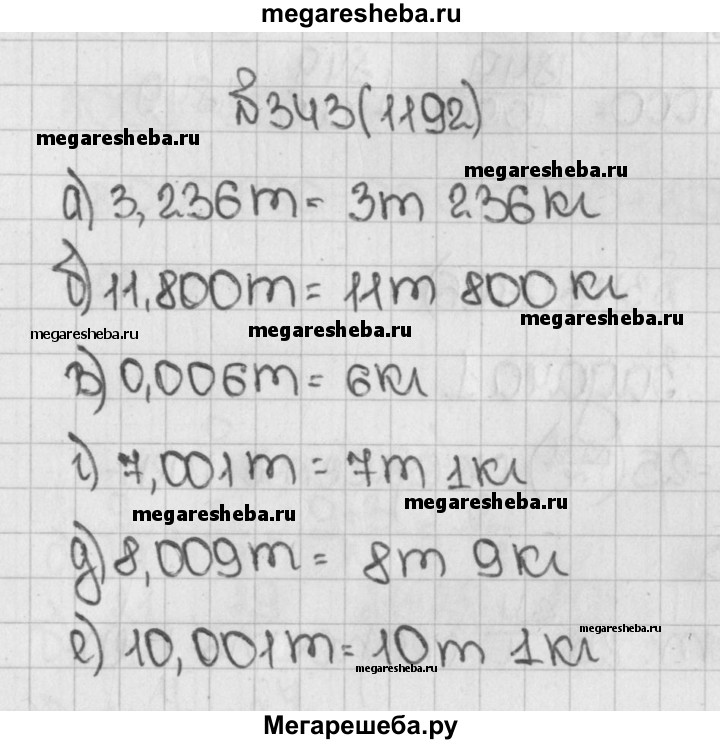 megaresheba.ru
№343(1192)
megaresheba.ru
megaresheba.ru
а) 3,236т= 3т 236кг
б) 11,800т= 11т 800кг
megaresheba.ru
megaresheba.ru
megaresheba.ru
в) 0,006т= 6кг
г) 7,001т= 7т 1кг
megaresheba.ru
megaresheba.ru
д) 8,009т= 8т 9кг
megaresheba.ru
е) 10,001т=10т 1кг
megaresheba.ru
Мегарешеба.ру